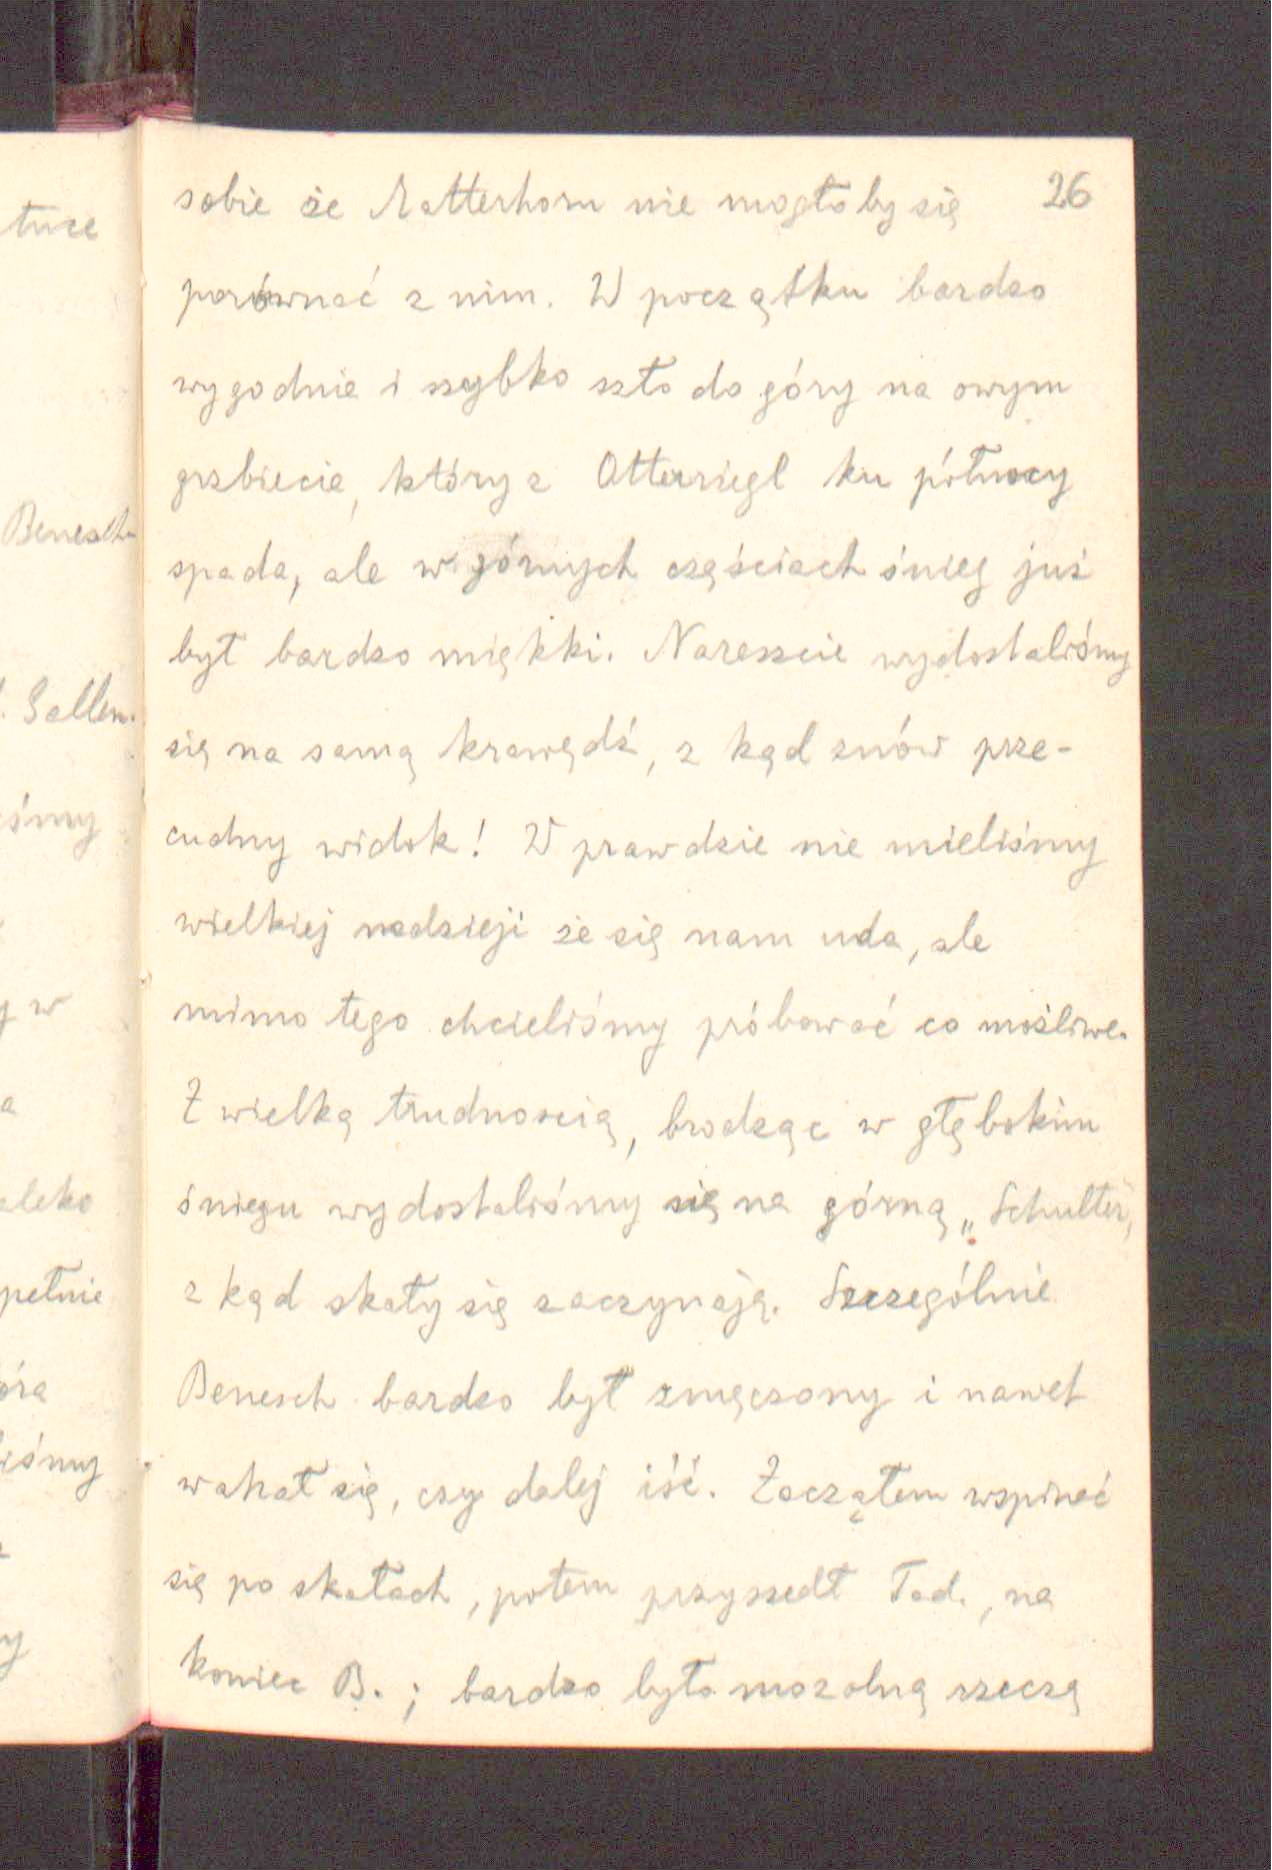 26
sobie że Matterhorn nie mogłoby się
porównać z nim. W początku bardzo
wygodnie i szybko szło do góry na owym
grzbiecie, który z Otterriegl ku północy
spada, ale w górnych częściach śnieg już
był bardzo miękki. Nareszcie wydostaliśmy
się na samą krawędź, z kąd znów prze-
cudny widok! W prawdzie nie mieliśmy
wielkiej nadzieji że się nam uda, ale
mimo tego chcieliśmy próbować co możliwe.
Z wielką trudnoscią, brodząc w głębokim
śniegu wydostaliśmy się na górną „Schulter",
z kąd skały się zaczynają. Szczególnie
Benesch bardzo był zmęczony i nawet
wahał się, czy dalej iść. Zacząłem wspinać
się po skałach, potem przyszedł Tad., na
koniec B.; bardzo było mozolną rzeczą
tuce
Benesch
Gallen.
śmy
y w
a
aleko
pełnie
óra
liśmy
y